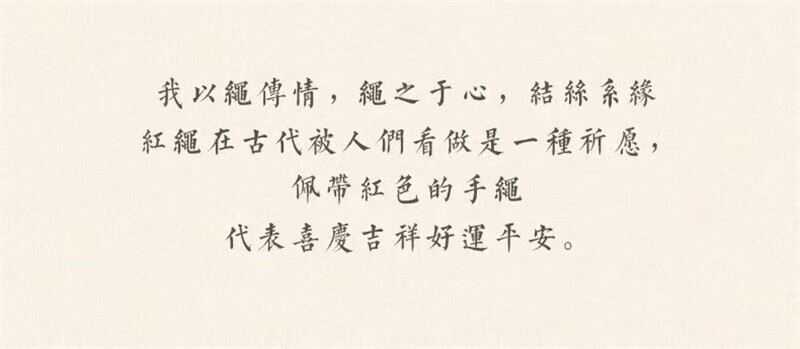 我以繩傳情，繩之于心，結絲系緣
紅繩在古代被人們看做是一種祈愿，
佩帶紅色的手繩
代表喜慶吉祥好運平安。